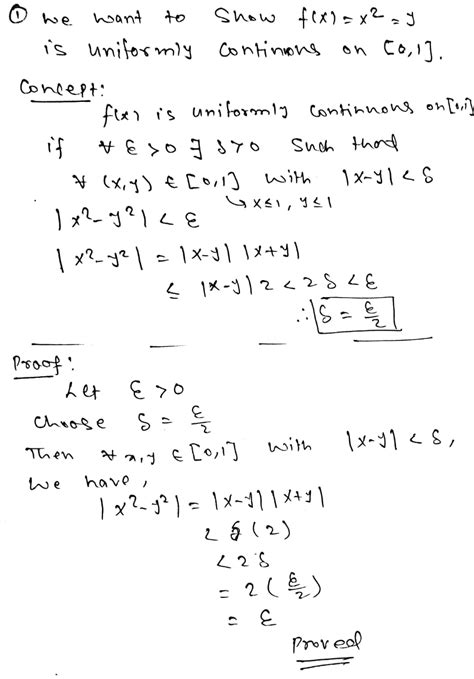 ① we want to show f(x) = x² = y
is uniformly continuous on [0,1].
Concept:
f(x) is uniformly continuous on [0,1]
if ∀ ε > 0 ∃ δ > 0 such that
∀ (x,y) ∈ [0,1] with |x-y| < δ
↳ x≤1, y≤1
|x²-y²| < ε
|x²-y²| = |x-y| |x+y|
≤ |x-y| 2 < 2δ < ε
∴ δ = ε/2
Proof:
Let ε > 0
choose δ = ε/2
Then ∀ x,y ∈ [0,1] with |x-y| < δ,
we have,
|x²-y²| = |x-y| |x+y|
< δ (2)
< 2δ
= 2 (ε/2)
= ε
Proved